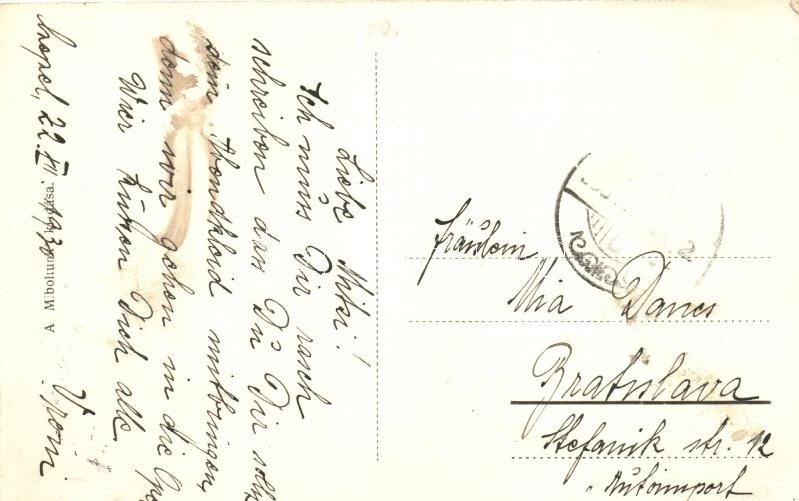 Liebe Mitzi!
Ich muss Dir rasch
schreiben dass Du Dir sollst
dein Abendkleid mitbringen,
denn wir gehen in die Oper
Wier küssen Dich alle
22. XII. 1930
A Miboltunk kiadása.
Fräulein
Mia Danes
Bratislava
Stefanik str. 12
"Autoimport